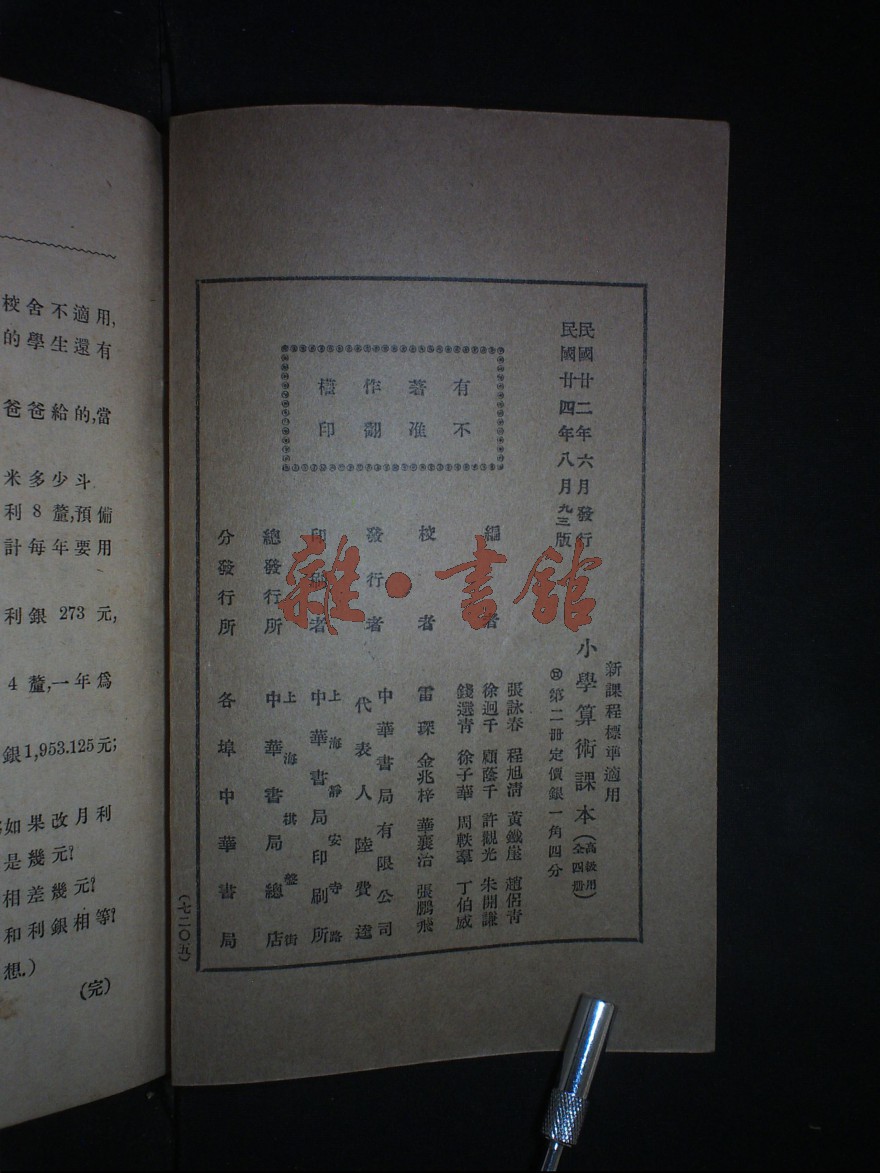 民國廿二年六月發行
民國廿四年八月九三版
新課程標準適用
小學算術課本(高級用 全四冊)
第二冊定價銀一角四分
有著作權
不准翻印
編者
張詠春 程旭清 黃鐵崖 趙侶青
徐迥千 顧蔭千 許觀光 朱開謙
錢選青 徐子華 周軼羣 丁伯威
校者
雷琛 金兆梓 華襄治 張鵬飛
發行者
中華書局有限公司
代表人 陸費逵
印刷者
上海靜安寺路
中華書局印刷所
總發行所
上海棋盤街
中華書局總店
分發行所
各埠中華書局
(七二〇五)
雜·書館
校舍不適用,
的學生還有
爸爸給的,當
米多少斗
利 8 釐,預備
計每年要用
利銀 273 元,
4 釐,一年爲
銀1,953.125元;
如果改月利
是幾元?
相差幾元?
和利銀相等?
想.)
(完)